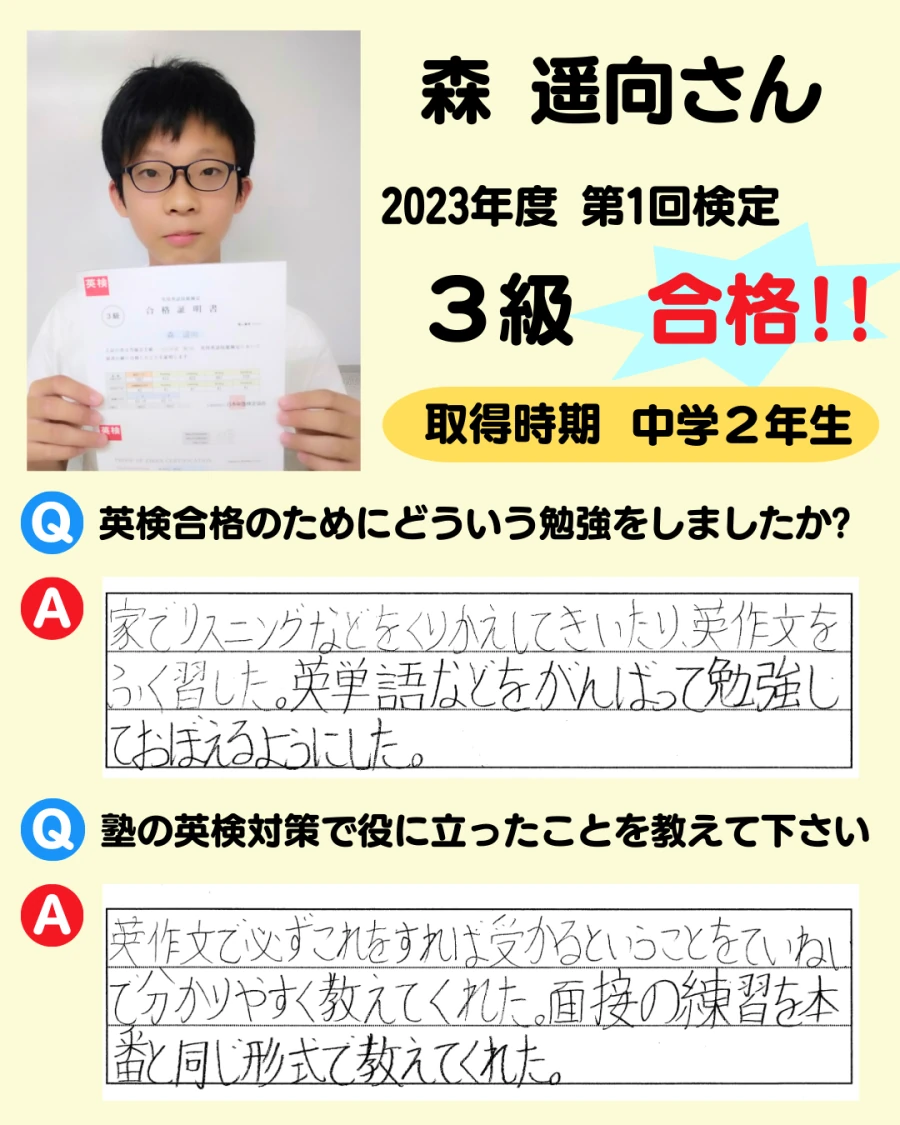 森 遥向さん
2023年度 第1回検定
3級 合格!!
取得時期 中学2年生
英検
3級
合格証明書
英検
Q 英検合格のためにどういう勉強をしましたか?
A
家でリスニングなどをくりかえしてきいたり、英作文を
ふく習した。英単語などをがんばって勉強し
ておぼえるようにした。
Q 塾の英検対策で役に立ったことを教えて下さい
A
英作文で必ずこれをすれば受かるということをていねい
で分かりやすく教えてくれた。面接の練習を本
番と同じ形式で教えてくれた。